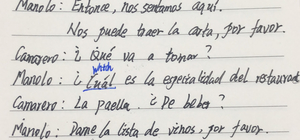 Manolo: Entonce, nos sentamos aquí.
Nos puede traer la carta, por favor.
Camarero: ¿Qué va a tomar?
which
Manolo: ¿Cuál es la especialidad del restaurant
Camarero: La paella. ¿De beber?
Manolo: Dame la lista de vinos. por favor.